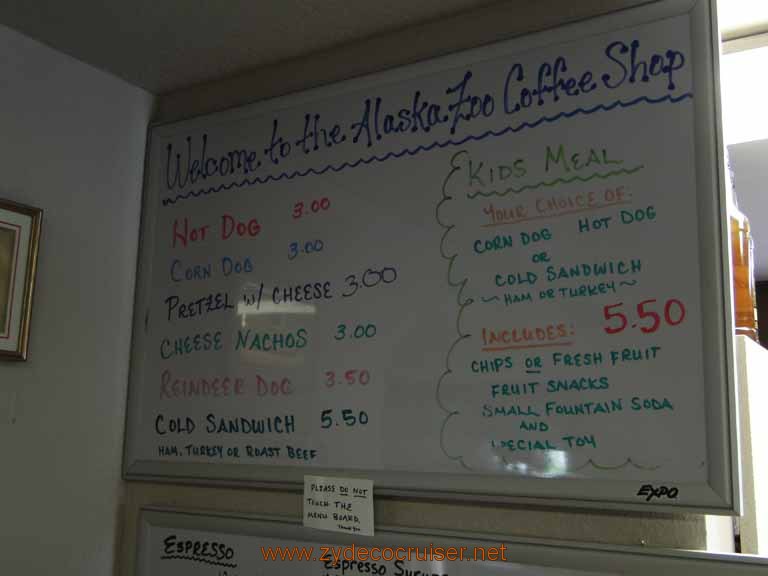 Welcome to the Alaska Zoo Coffee Shop
HOT DOG 3.00
CORN DOG 3.00
PRETZEL W/ CHEESE 3.00
CHEESE NACHOS 3.00
REINDEER DOG 3.50
COLD SANDWICH 5.50
HAM, TURKEY OR ROAST BEEF
KIDS MEAL
YOUR CHOICE OF:
CORN DOG HOT DOG
OR
COLD SANDWICH
~ HAM OR TURKEY ~
INCLUDES: 5.50
CHIPS OR FRESH FRUIT
FRUIT SNACKS
SMALL FOUNTAIN SODA
AND
SPECIAL TOY
EXPO
PLEASE DO NOT
TOUCH THE
MENU BOARD.
Thank You
ESPRESSO
Espresso
www.zydecocruiser.net